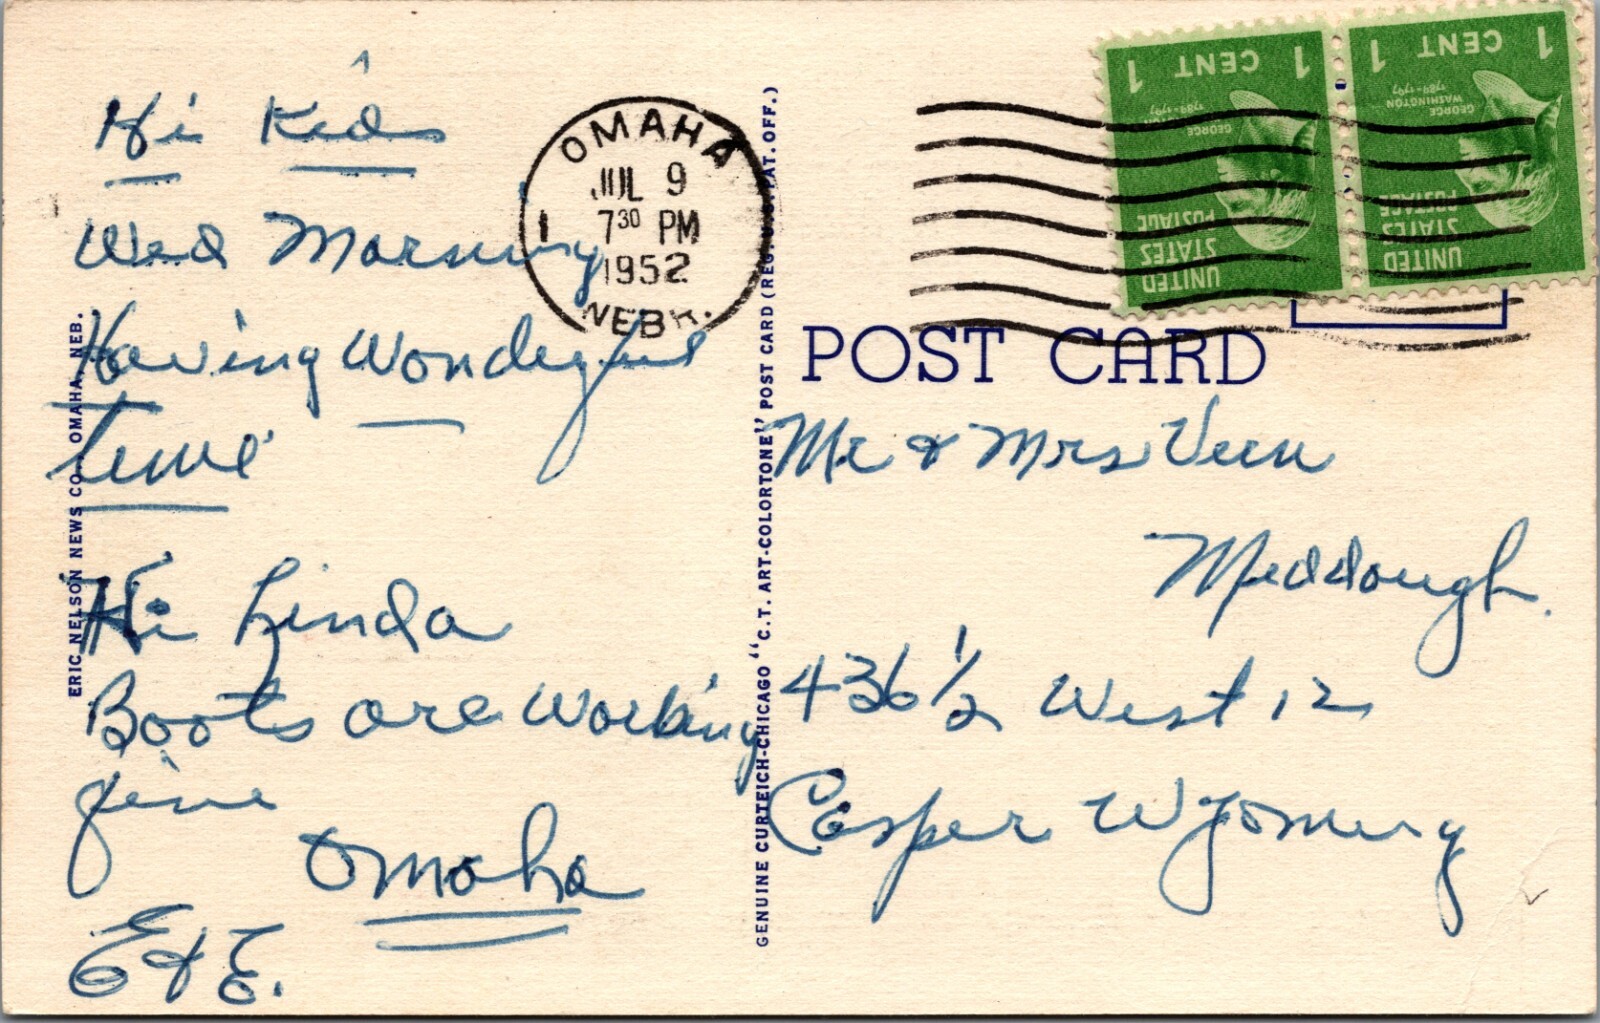 Hi Kids
Wed Morning
Having Wonderful
time
Hi Linda
Boots are Working
fine
Omaha
E & E.
ERIC NELSON NEWS CO., OMAHA, NEB.
OMAHA
JUL 9
7 30 PM
1952
NEBR.
1
GENUINE CURTEICH-CHICAGO "C.T. ART-COLORTONE" POST CARD (REG. U.S. PAT. OFF.)
1 CENT 1
GEORGE
WASHINGTON
1789-1797
UNITED
STATES
POSTAGE
1 CENT 1
GEORGE
WASHINGTON
1789-1797
UNITED
STATES
POSTAGE
POST CARD
Mr & Mrs Vern
Meddough.
436 1/2 West 12
Casper Wyoming